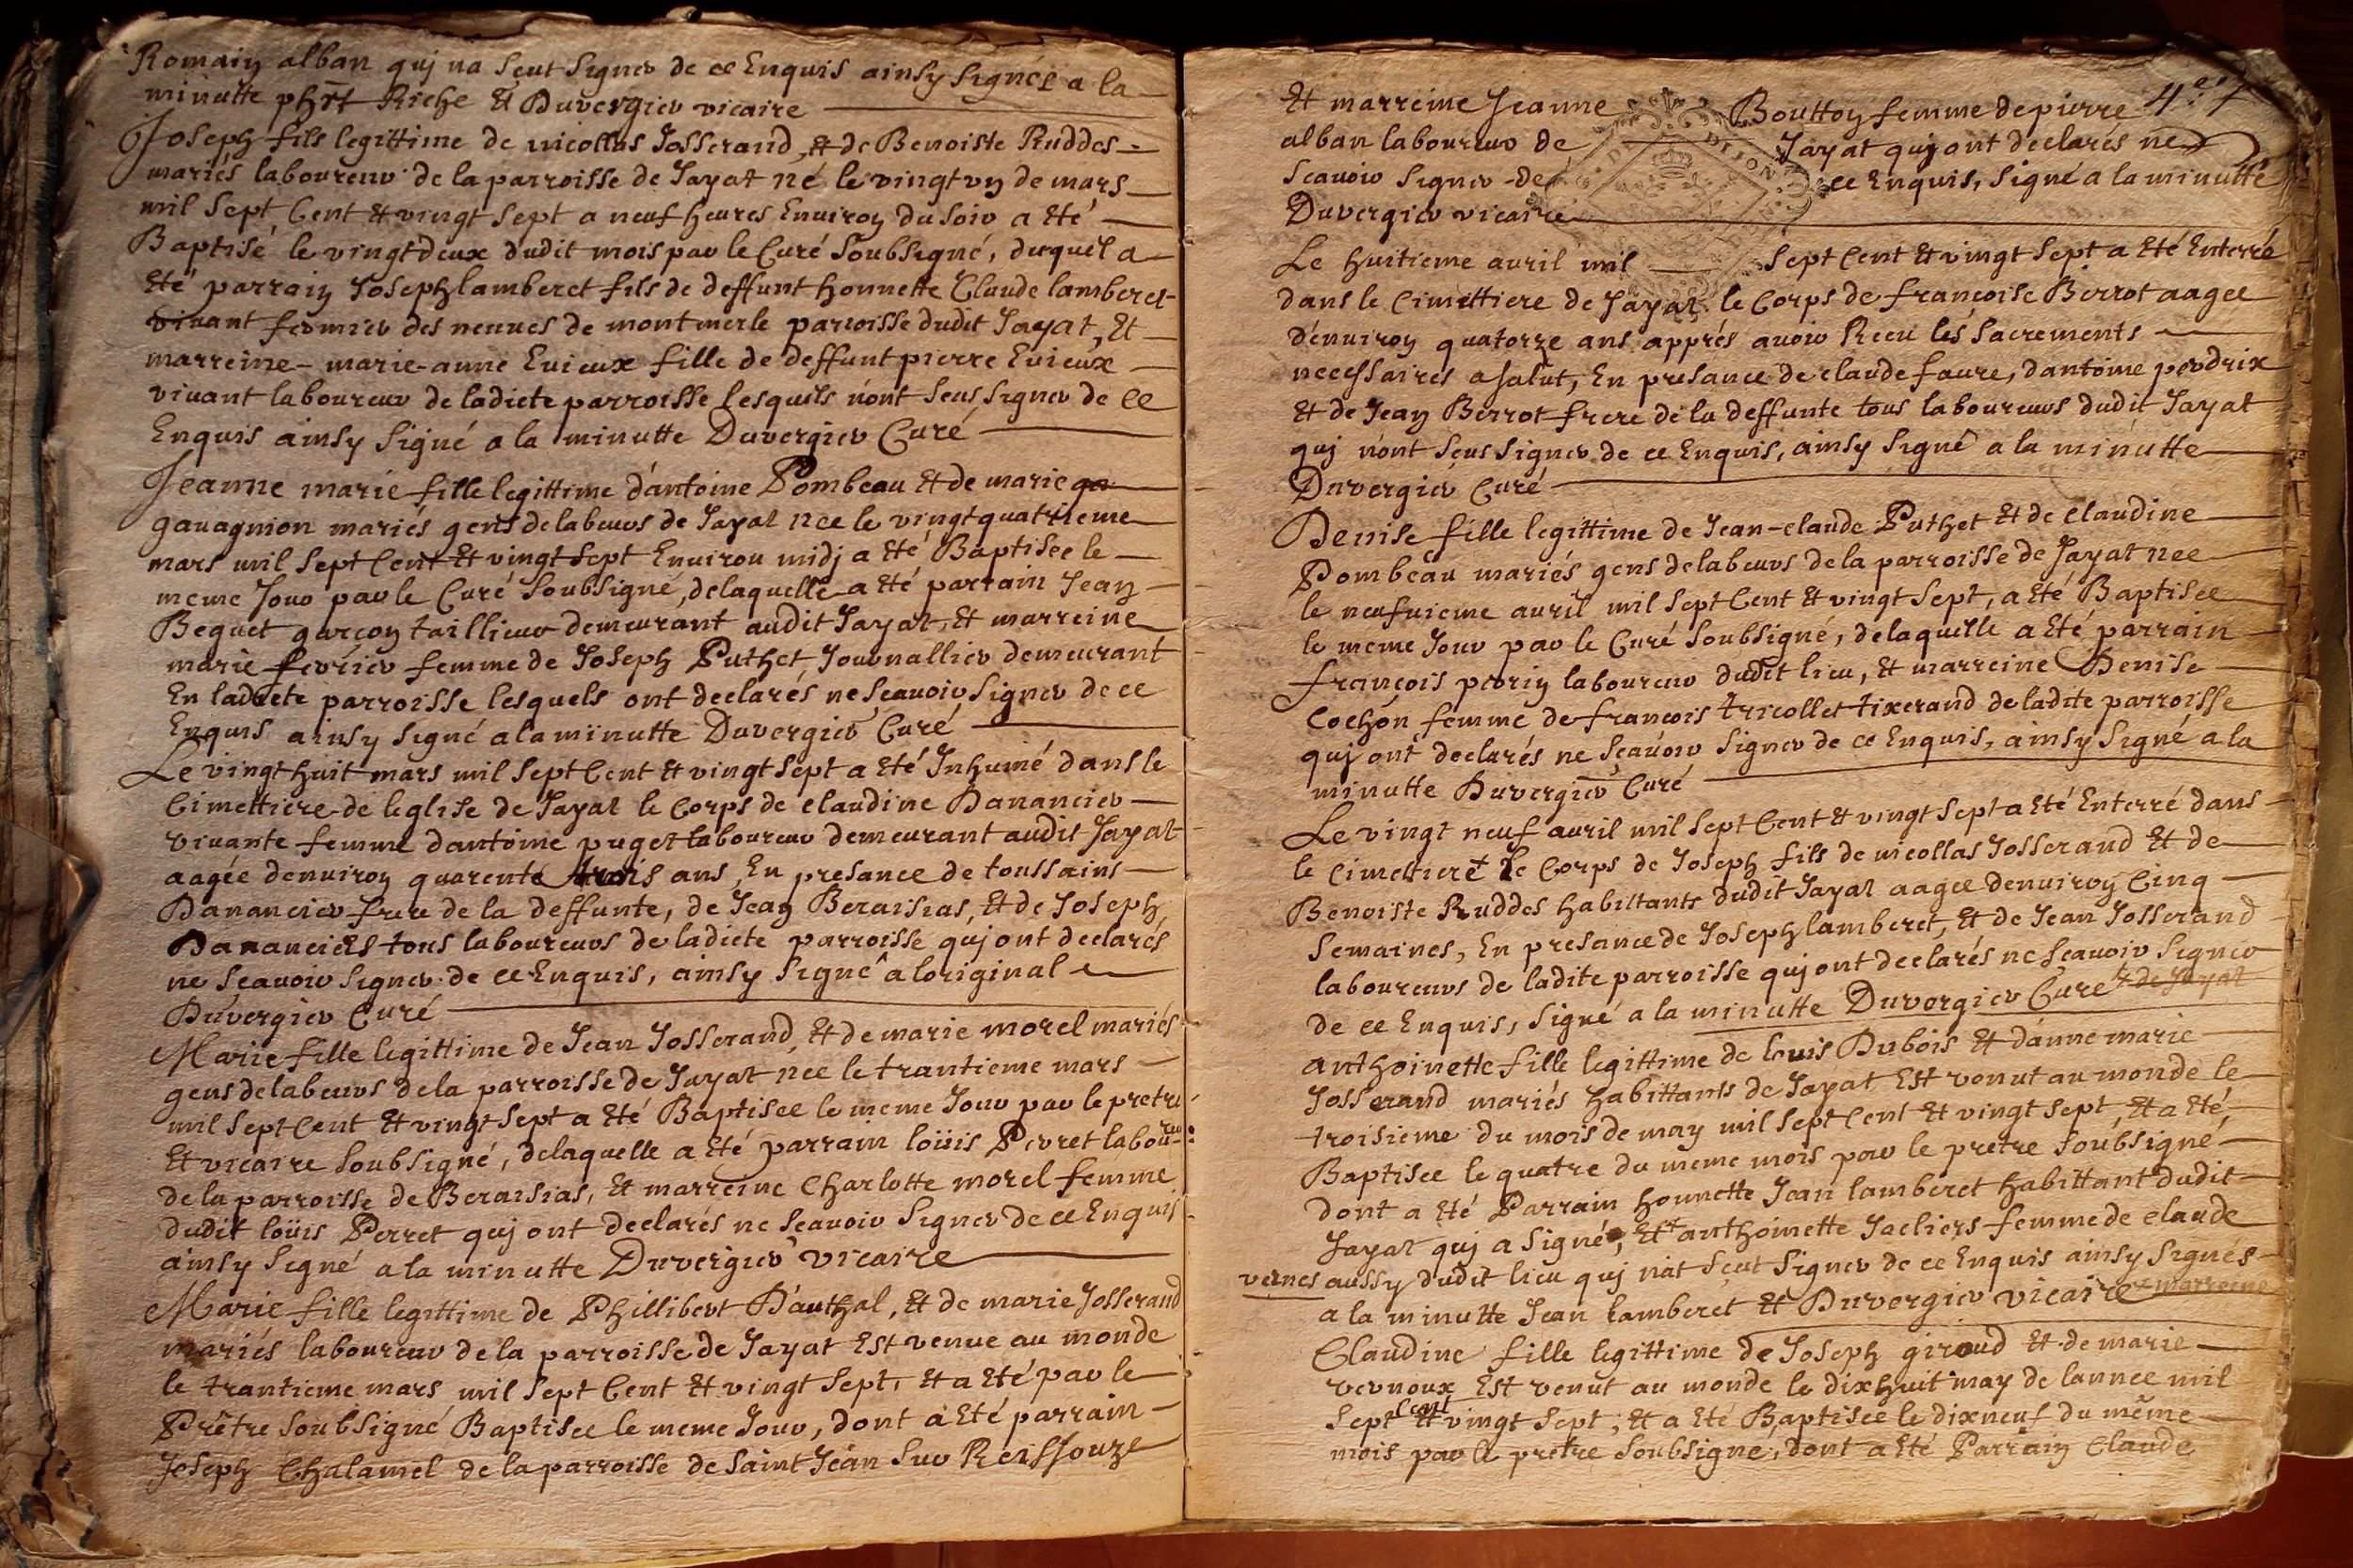 Romain alban quj na Sçut Signer de ce Enquis ainsy Signéz a la
minutte phrt Riche Et Duvergier vicaire
Joseph fils legittime de nicollas Josserand, et de Benoiste Ruddes
mariés laboureur de la parroisse de Jayat né le vingt vn de mars
mil Sept Cent Et vingt Sept a neuf heures Enuiron du Soir a Eté
Baptisé le vingt deux dudit mois par le Curé Soubsigné, duquel a
Eté parrain Joseph lamberet fils de deffunt honnette Claude lamberet
viuant fermier des nenues de montmerle parroisse dudit Jayat, Et
marreine marie-anne Euieux fille de deffunt pierre Euieux
viuant laboureur de ladicte parroisse lesquels nont Sçus Signer de ce
Enquis ainsy Signé a la minutte Duvergier Curé
Jeanne marie fille legittime dantoine Pombeau Et de marie ga
gauagnion mariés gens de labeurs de Jayat nee le vingt quatrieme
mars mil Sept Cent Et vingt Sept Enuiron midj a Eté Baptisee le
meme Jour par le Curé Soubsigné, delaquelle a Eté parrain Jean
Beguet garçon taillieur demeurant audit Jayat, Et marreine
marie fevrier femme de Joseph Puthet Journallier demeurant
En ladicte parroisse lesquels ont declarés ne Scauoir Signer de ce
Enquis ainsy Signé a la minutte Duvergier Curé
Le vingt huit mars mil Sept Cent Et vingt Sept a Eté Inhumé dans le
Cimettiere de leglise de Jayat le Corps de Claudine Dananciер
viuante femme dantoine puget laboureur demeurant audit Jayat
aagée denuiron quarente trois ans, En presance de toussains
Danancier frere de la deffunte, de Jean Beraisias, Et de Joseph
Dananciers tous laboureurs de ladicte parroisse quj ont declarés
ne Scauoir Signer de ce Enquis, ainsy Signé a loriginal
Duvergier Curé
Marie fille legittime de Jean Josserand, Et de marie morel mariés
gens delabeurs de la parroisse de Jayat nee le trantieme mars
mil Sept Cent Et vingt Sept a Eté Baptisee le meme Jour par le pretre
Et vicaire Soubsigné, delaquelle a Eté parrain loüis Perret laboureu
de la parroisse de Beraisias, Et marreine Charlotte morel femme
dudit loüis Perret quj ont declarés ne Scauoir Signer de ce Enquis
ainsy Signé a la minutte Duvergier vicaire
Marie fille legittime de Phillibert Dauthal, Et de marie Josserand
mariés laboureur de la parroisse de Jayat Est venue au monde
le trantieme mars mil Sept Cent Et vingt Sept, Et a Eté par le
Prêtre Soubsigné Baptisee le meme Jour, dont a Eté parrain
Joseph Chalamel de la parroisse de Saint Jean Sur Reissouze
Et marreine Jeanne Bouttoy femme de pierre
alban laboureur de Jayat quj ont declarés ne
Scauoir Signer de ce Enquis, Signé a la minutte
Duvergier vicaire
Le huitieme auril mil Sept Cent Et vingt Sept a Eté Enterré
dans le Cimettiere de Jayat le Corps de francoise Berrot aagee
denuiron quatorze ans appres auoir Receu les Sacrements
necessaires a Salut, En presance de claude faure, dantoine perdrix
Et de Jean Berrot frere de la deffunte tous laboureurs dudit Jayat
quj nont Sçus Signer de ce Enquis, ainsy Signé a la minutte
Duvergier Curé
Denise fille legittime de Jean-claude Puthet Et de Claudine
Pombeau mariés gens delabeurs de la parroisse de Jayat nee
le neufuieme auril mil Sept Cent Et vingt Sept, a Eté Baptisee
le meme Jour par le Curé Soubsigné, delaquelle a Eté parrain
françois perrin laboureur dudit lieu, Et marreine Denise
Cochon femme de francois tricollet tixerand de ladite parroisse
quj ont declarés ne Scauoir Signer de ce Enquis, ainsy Signé a la
minutte Duvergier Curé
Le vingt neuf auril mil Sept Cent Et vingt Sept a Eté Enterré dans
le Cimettiere + le Corps de Joseph fils de nicollas Josserand Et de
Benoiste Ruddes habittants dudit Jayat aagee denuiron Cinq
Semaines, En presance de Joseph lamberet, Et de Jean Josserand
laboureurs de ladite parroisse quj ont declarés ne Scauoir Signer
de ce Enquis, Signé a la minutte Duvergier Curé + de Jayat
anthoinette fille legittime de louis Dubois Et danne marie
Josserand mariés habittants de Jayat Est venut au monde le
troisieme du mois de may mil Sept Cent Et vingt Sept, Et a Eté
Baptisee le quatre du meme mois par le pretre Soubsigné
dont a Eté Parrain honnette Jean lamberet habittant dudit
Jayat quj a Signé, Et + anthoinette Jacliers femme de claude
veines aussy dudit lieu quj nat Sçut Signer de ce Enquis ainsy Signés
a la minutte Jean lamberet Et Duvergier vicaire + marreine
Claudine fille legittime de Joseph giroud Et de marie
vernoux Est venut au monde le dixhuit may de lannee mil
Sept Cent Et vingt Sept, Et a Eté Baptisee le dixneuf du même
mois par le pretre Soubsigné, dont a Eté Parrain Claude
DIJON